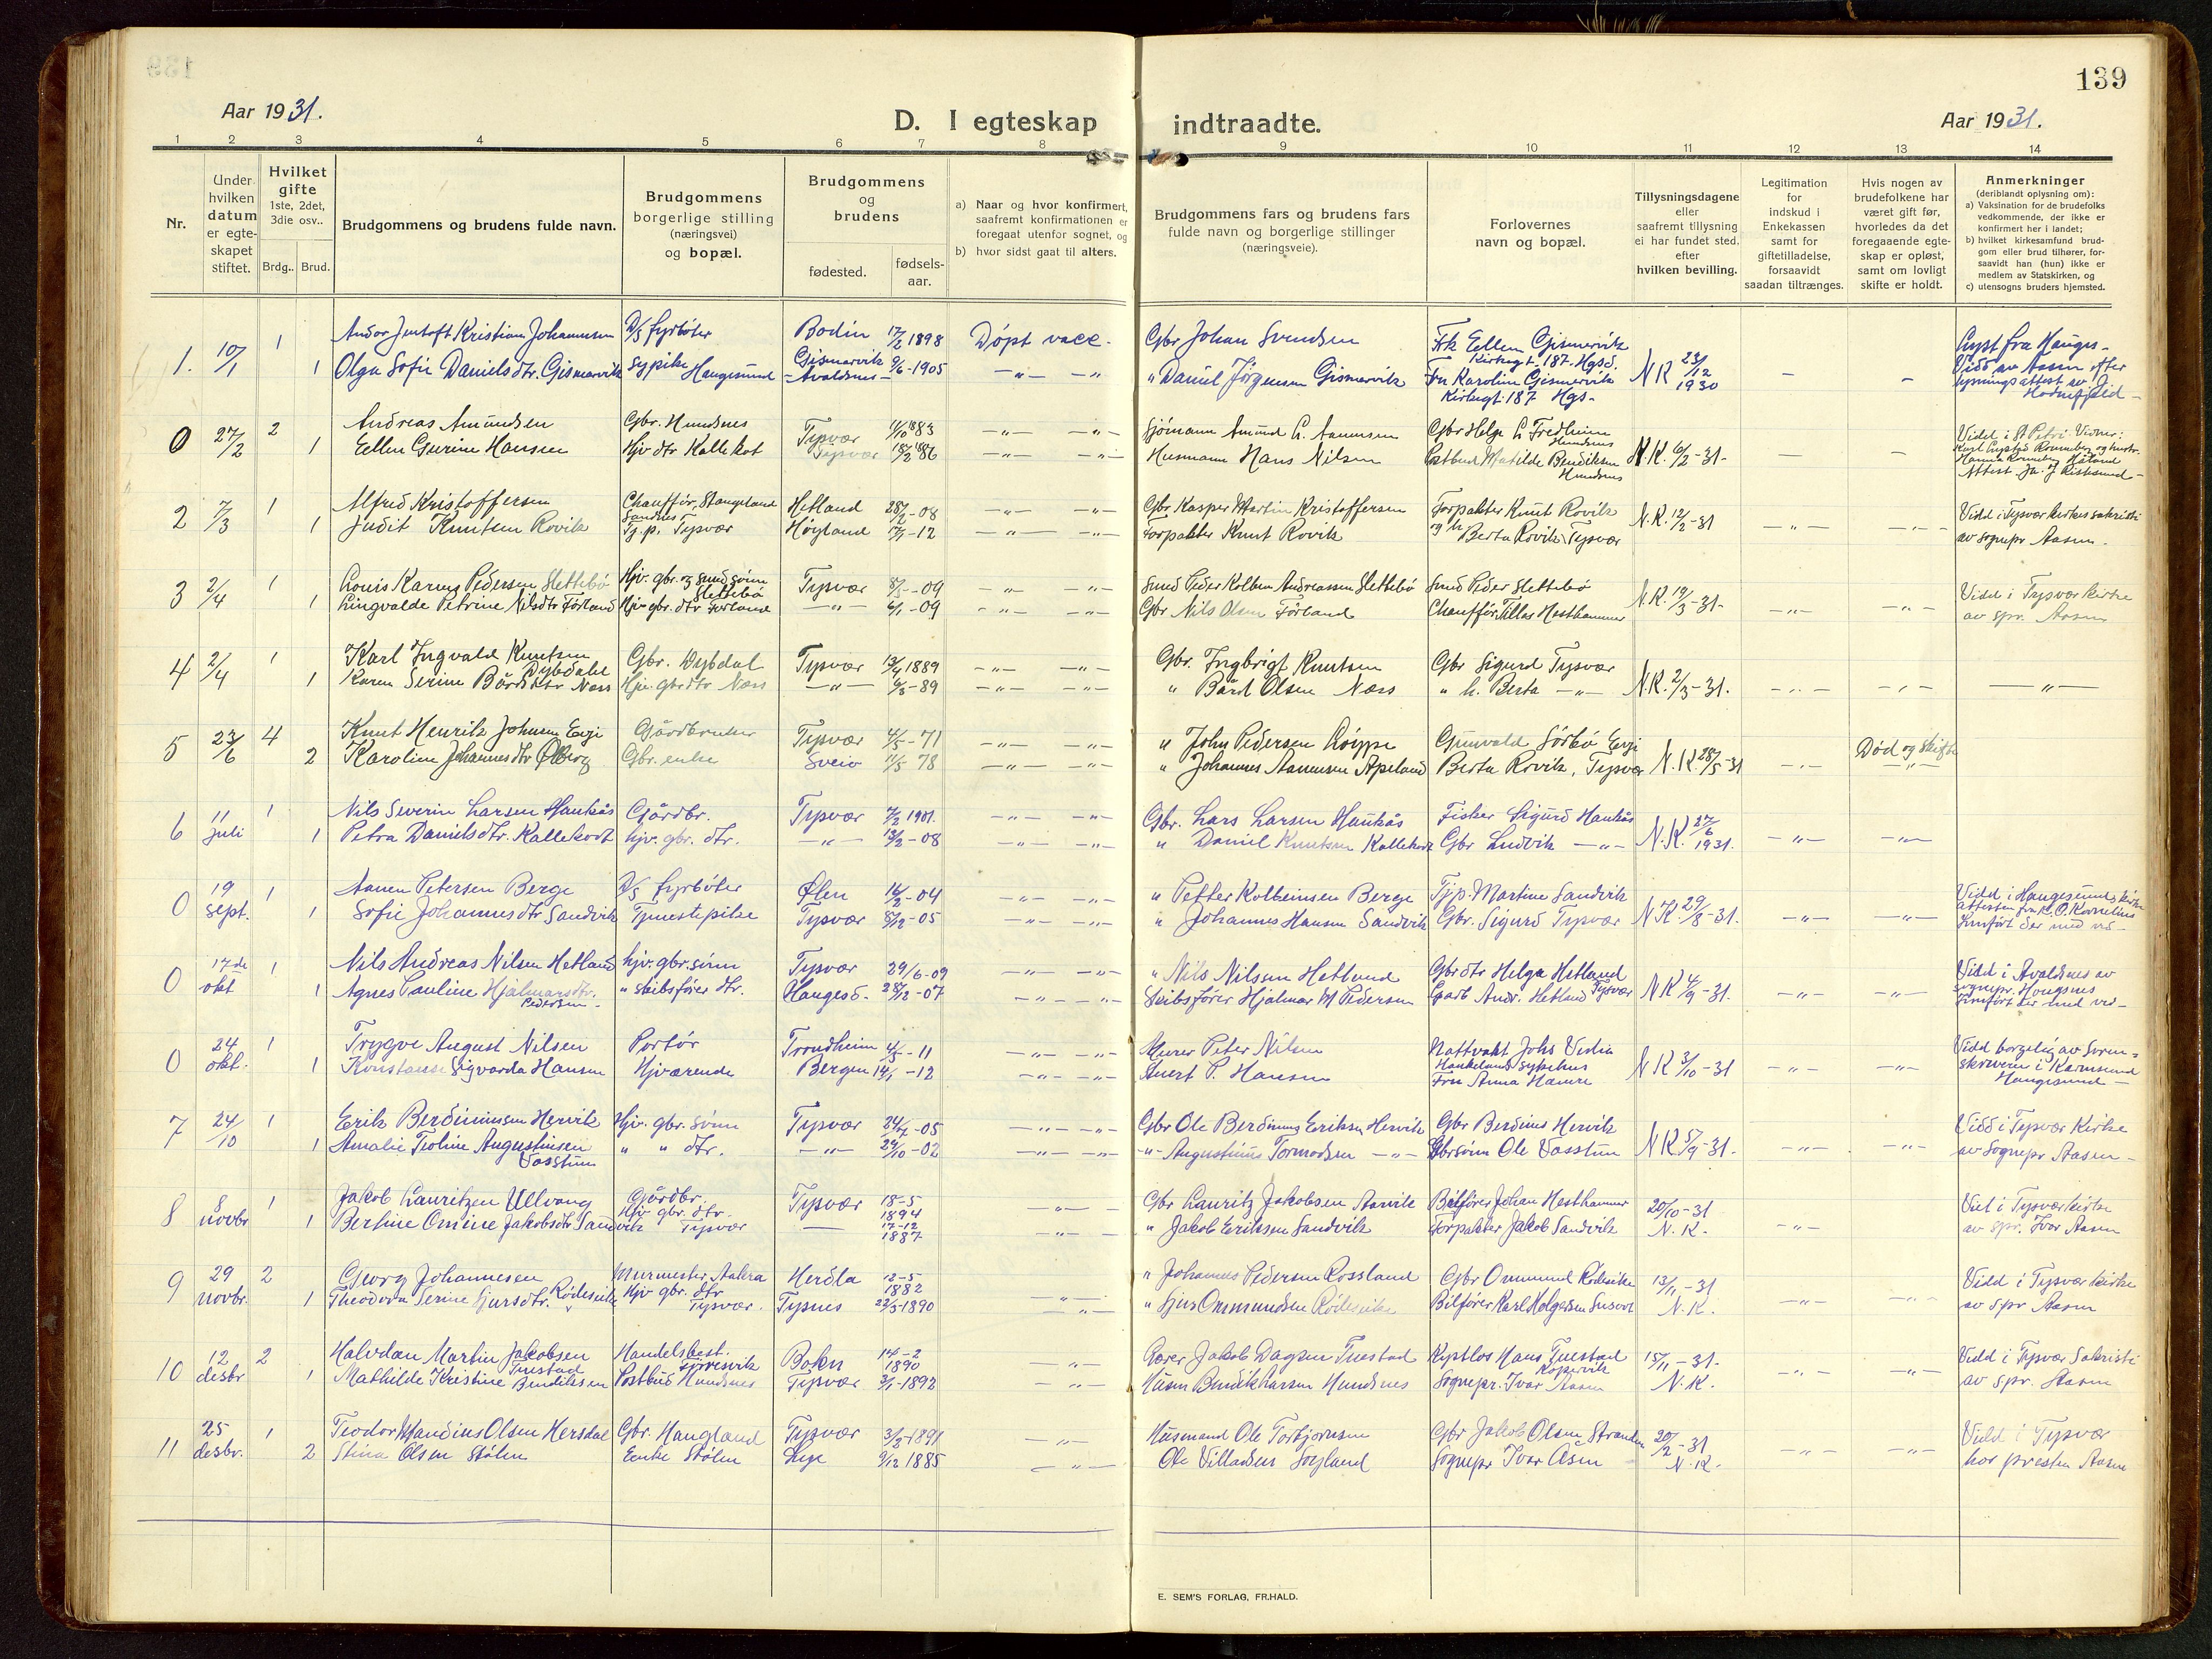 139
Aar 1931.
D. I egteskap indtraadte.
Aar 1931.
1 2 3 4 5 6 7 8 9 10 11 12 13 14
Nr.
Under hvilken datum er egteskapet stiftet.
Hvilket gifte 1ste, 2det, 3die osv..
Brdg.. Brud.
Brudgommens og brudens fulde navn.
Brudgommens borgerlige stilling (næringsvei) og bopæl.
Brudgommens og brudens
fødested. fødsels-aar.
a) Naar og hvor konfirmert, saafremt konfirmationen er foregaat utenfor sognet, og
b) hvor sidst gaat til alters.
Brudgommens fars og brudens fars fulde navn og borgerlige stillinger (næringsveie).
Forlovernes navn og bopæl.
Tillysningsdagene eller saafremt tillysning ei har fundet sted, efter hvilken bevilling.
Legitimation for indskud i Enkekassen samt for giftetilladelse, forsaavidt saadan tiltrænges.
Hvis nogen av brudefolkene har været gift før, hvorledes da det foregaaende egteskap er opløst, samt om lovligt skifte er holdt.
Anmerkninger
(deriblandt oplysning om):
a) Vaksination for de brudefolks vedkommende, der ikke er konfirmert her i landet;
b) hvilket kirkesamfund brudgom eller brud tilhører, forsaavidt han (hun) ikke er medlem av Statskirken, og
c) utensogns bruders hjemsted.
1. 10/1 1 Andor Jentoft Kristian Johannesen D/S fyrbøter Bodin 17/2 1898 Døpt vacc. Gbr Johan Svendsen Frk Ellen Gismervik Kirkegt. 187. Hgsd. N K 23/12 1930
1 Olga Sofie Danielsdtr. Gismervik Sypike Haugesund Gismarvik Avaldsnes 9/6-1905 " Daniel Jørgensen Gismervik Fru Karoline Gismervik Kirkegt. 187 Hgs-
0 27/2 2 Andreas Amundsen Gbr. Hundsnes Tysvær 11/10 1883 Sjømann Amund A. Aanensen Gbr Helge L Fredheim Hundsnes N.K. 6/2-31-
1 Ellen Gurine Hansen Hjv dtr Kallekot Tysvær 18/2 1886 Husmann Hans Nilsen Postbud Matilde Bendiksen Hundsnes
2 7/3 1 Alfred Kristoffersen Chauffør, Stangeland Sandnes Hetland 28/2-08 Gbr Kasper Martin Kristoffersen Forpakter Knut Rovik N.K. 12/2-31 Vidd i Tysvær kirkes sakristi
1 Judit Knutsen Rovik Tj.p. Tysvær Høyland 17/1-12 Forpakter Knut Rovik og h. Berta Rovik, Tysvær av sognepr Aasen.
3 2/4 1 Louis Karenus Pedersen Slettebø Hjv. gbr. og smedsønn Slettebø Tysvær 8/5-09 Smed Peder Kolben Andreassen Slettebø Smed Peder Slettebø N.K. 19/3-31- Vidd i Tysvær kirke
1 Lingvalde Petrine Nilsdtr Førland Hjv gbr. dtr Førland 6/1-09 Gbr Nils Olsen Førland Chauffør Tillas Hesthammer av spr. Aasen
4 2/4 1 Karl Ingvald Knutsen Dybdahl Gbr. Dybdal Tysvær 13/4 1889 Gbr. Ingbrigt Knutsen Gbr Sigurd Tysvær N.K. 2/3-31.
1 Karen Serine Bårdsdtr Næss Hjv. gbr dtr Næss 6/3-89 " Bård Olsen Næss " h. Berta
5 23/6 4 Knut Henrik Johnsen Eeje Gårdbruker Tysvær 4/5-71 " John Pedersen Løippe Gunvald Sørbø Eeje N.K. 28/5-31 Død og skifte
2 Karoline Johannesdtr Økberg Gbr. enke Sveio 11/5 78 " Johannes Aanensen Apeland Berta Rovik, Tysvær
6 11 juli 1 Nils Severin Larsen Haukås Gårdbr. Tysvær 7/2 1901. Gbr. Lars Larsen Haukås Fisker Sigurd Haukås N.K. 27/6 1931.
1 Petra Danielsdtr. Kallekodt hjv. gbr. dtr. 13/2-08 " Daniel Knutsen Kallekodt Gbr Ludvik
0 19 sept. 1 Aanen Petersen Berge D/S fyrbøter Ølen 16/2-04 " Petter Kolbeinsen Berge Tjp. Martine Sandvik N K 29/8-31.
1 Sofie Johannesdtr Sandvik Tjenestepike Tysvær 8/12-05 " Johannes Hansen Sandvik Gbr. Sigurd Tysvær
0 17de okt 1 Nils Andreas Nilsen Hetland hjv. gbr. sønn Tysvær 29/6-09 " Nils Nilsen Hetland Gbr dtr Helga Hetland N K 4/9-31. Vidd i Avaldsnes av
1 Agnes Pauline Hjalmarsdtr. Pedersen- " skibsfører dtr. Haugesd- 28/12-07 Skibsfører Hjalmar M Pedersen Gårdb Andr. Hetland Tysvær
0 24 okt. 1 Trygve August Nilsen Portør Trondheim 4/5-11 Murer Peter Nilsen Nattvakt Johs Vedia Haukeland sykehus N K 3/10-31 Vidd borgelig av Soren-
1 Konstanse Sigvarda Hansen Hjværende Bergen 14/1-12 Anert P. Hansen Fru Anna Hamre skriveren i Karmsund Haugesund-
7 24/10 1 Erik Berdiniussen Hervik Hjv. gbr. sønn Tysvær 24/7-05 Gbr Ole Berdinus Eriksen Hervik Gbr Berdinus Hervik N K 5/9-31. Vidd i Tysvær Kirke
1 Amalie Teoline Augustinsen Vasstun " " dtr. 29/10-02 Augustinus Tormodsen Gbrsønn Ole Vasstun av Sognepr Aasen-
8 8 novbr 1 Jakob Lauritzen Ullvang Gårdbr. Tysvær 18-5 1894 Gbr Lauritz Jakobsen Aarvik Bilfører Johan Hesthammer 20/10-31 Vid i Tysvær kirke
1 Bertine Omine Jakobsdtr Sandvik Hjv gbr. dtr. Tysvær 17-12 1887 " Jakob Eriksen Sandvik Forpakter Jakob Sandvik N. K. av spr. Ivar Aasen
9 29 novbr. 2 Georg Johannesen Murmester, Aakra Herdla 12-5 1882 " Johannes Pedersen Rossland Gbr Ommund Rødesike 13/11-31 Vidd i Tysvær kirke
1 Theodora Serine Sjursdtr. Rødesike Hjv gbr. dtr Tysvær. Tysnes 22/5-1890 " Sjur Ommundsen Rødesike Bilfører Karl Helgesen Susort N. K. av spr Aasen
10 12 desbr 2 Halvdan Martin Jakobsen Tuestad Handelsbest. Førresvik Bokn 14-2 1890 Garver Jakob Dagsen Tuestad Hans Tuestad Kopervik 15/11-31. Vidd i Tysvær Sakristi
1 Mathilde Kristine Bendiksen Postbud Hundsnes Tysvær 3/1-1892 Husm Bendik Larsen Hundsnes Sognepr. Ivar Aasen N.K. av spr. Aasen
11 25 desbr. 1 Teodor Mandius Olsen Hersdal Gbr. Haugland Tysvær 3/3-1891 Husmand Ole Torbjørnsen Gbr Jakob Olsen Stranden 20/2-31 Vidd i Tysvær
2 Stina Olsen Stølen Enke Stølen Lye 9/12 1885 Ole Villadsen Sogland Sognepr Ivar Åsen N. K. hos presten Aasen
E. SEM'S FORLAG, FR.HALD.